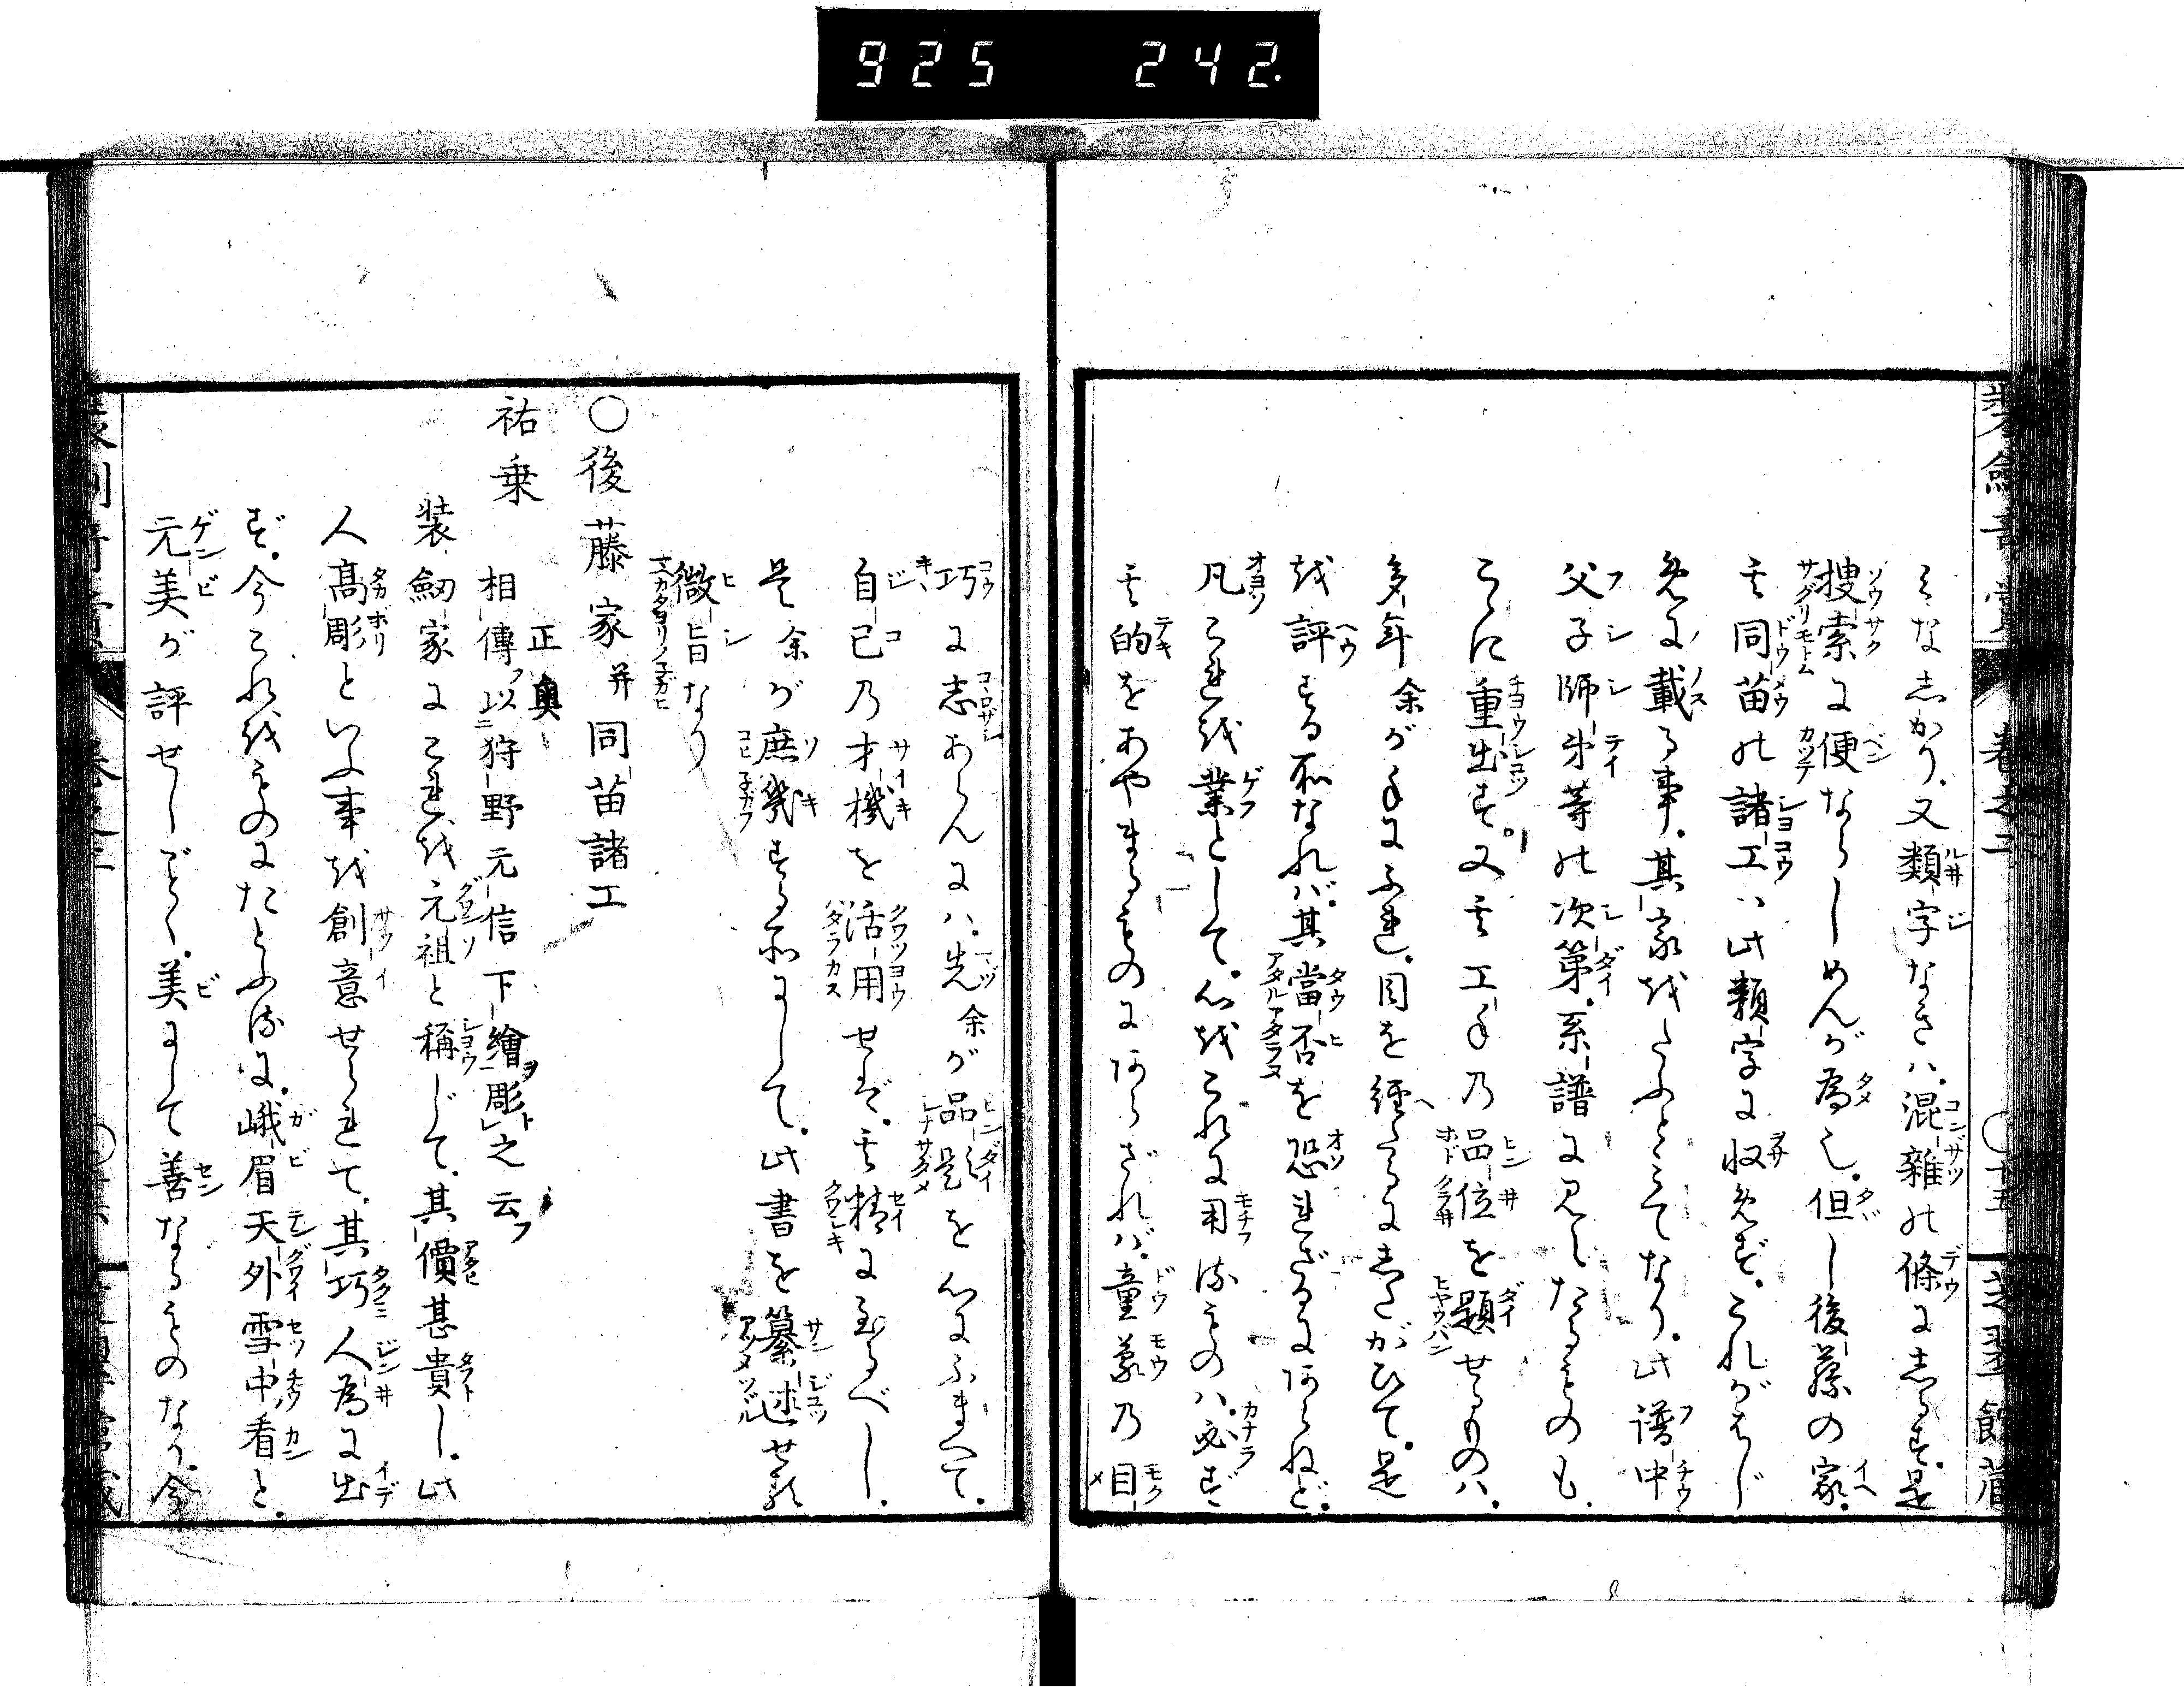 925 242
巻之二
十五
ミな志かり、又類字なきハ、混雑の條に志るす、是
捜索に便ならしめんが為也、但し後藤の家、
其同苗の諸工ハ此類字に収めず、これがはじ
めに載る事、其家を
父子師弟等の次第、系譜に見へたるものも、
こゝに重出す、又其工手乃品位を題せるものハ、
多年余が手にふれ、目を経たるに志たがひて、是
を評する所なれバ、其當否を恐れざるにあらねど、
凡これを業として、心をこれに用るものハ、必ず
其的をあやまるものにあらざれバ、童蒙乃目
巧に志あらんにハ、先余が品題を心にふまへて、
自己乃才機を活用せバ、其精に至るべし、
是余が庶幾する所にして、此書を纂述せる
微旨なり
○後藤家并同苗諸工
祐乗 正奥
相傳フ以ニ狩野元信下繪ヲ彫ト之云フ
装劒家にこれを元祖と称じて、其價甚貴し、此
人髙彫といふ事を創意せられて、其巧人為に出
ず、今これをものにたとふるに、峨眉天外雪中看と、
元美が評せしごとく、美にして善なるものなり、今